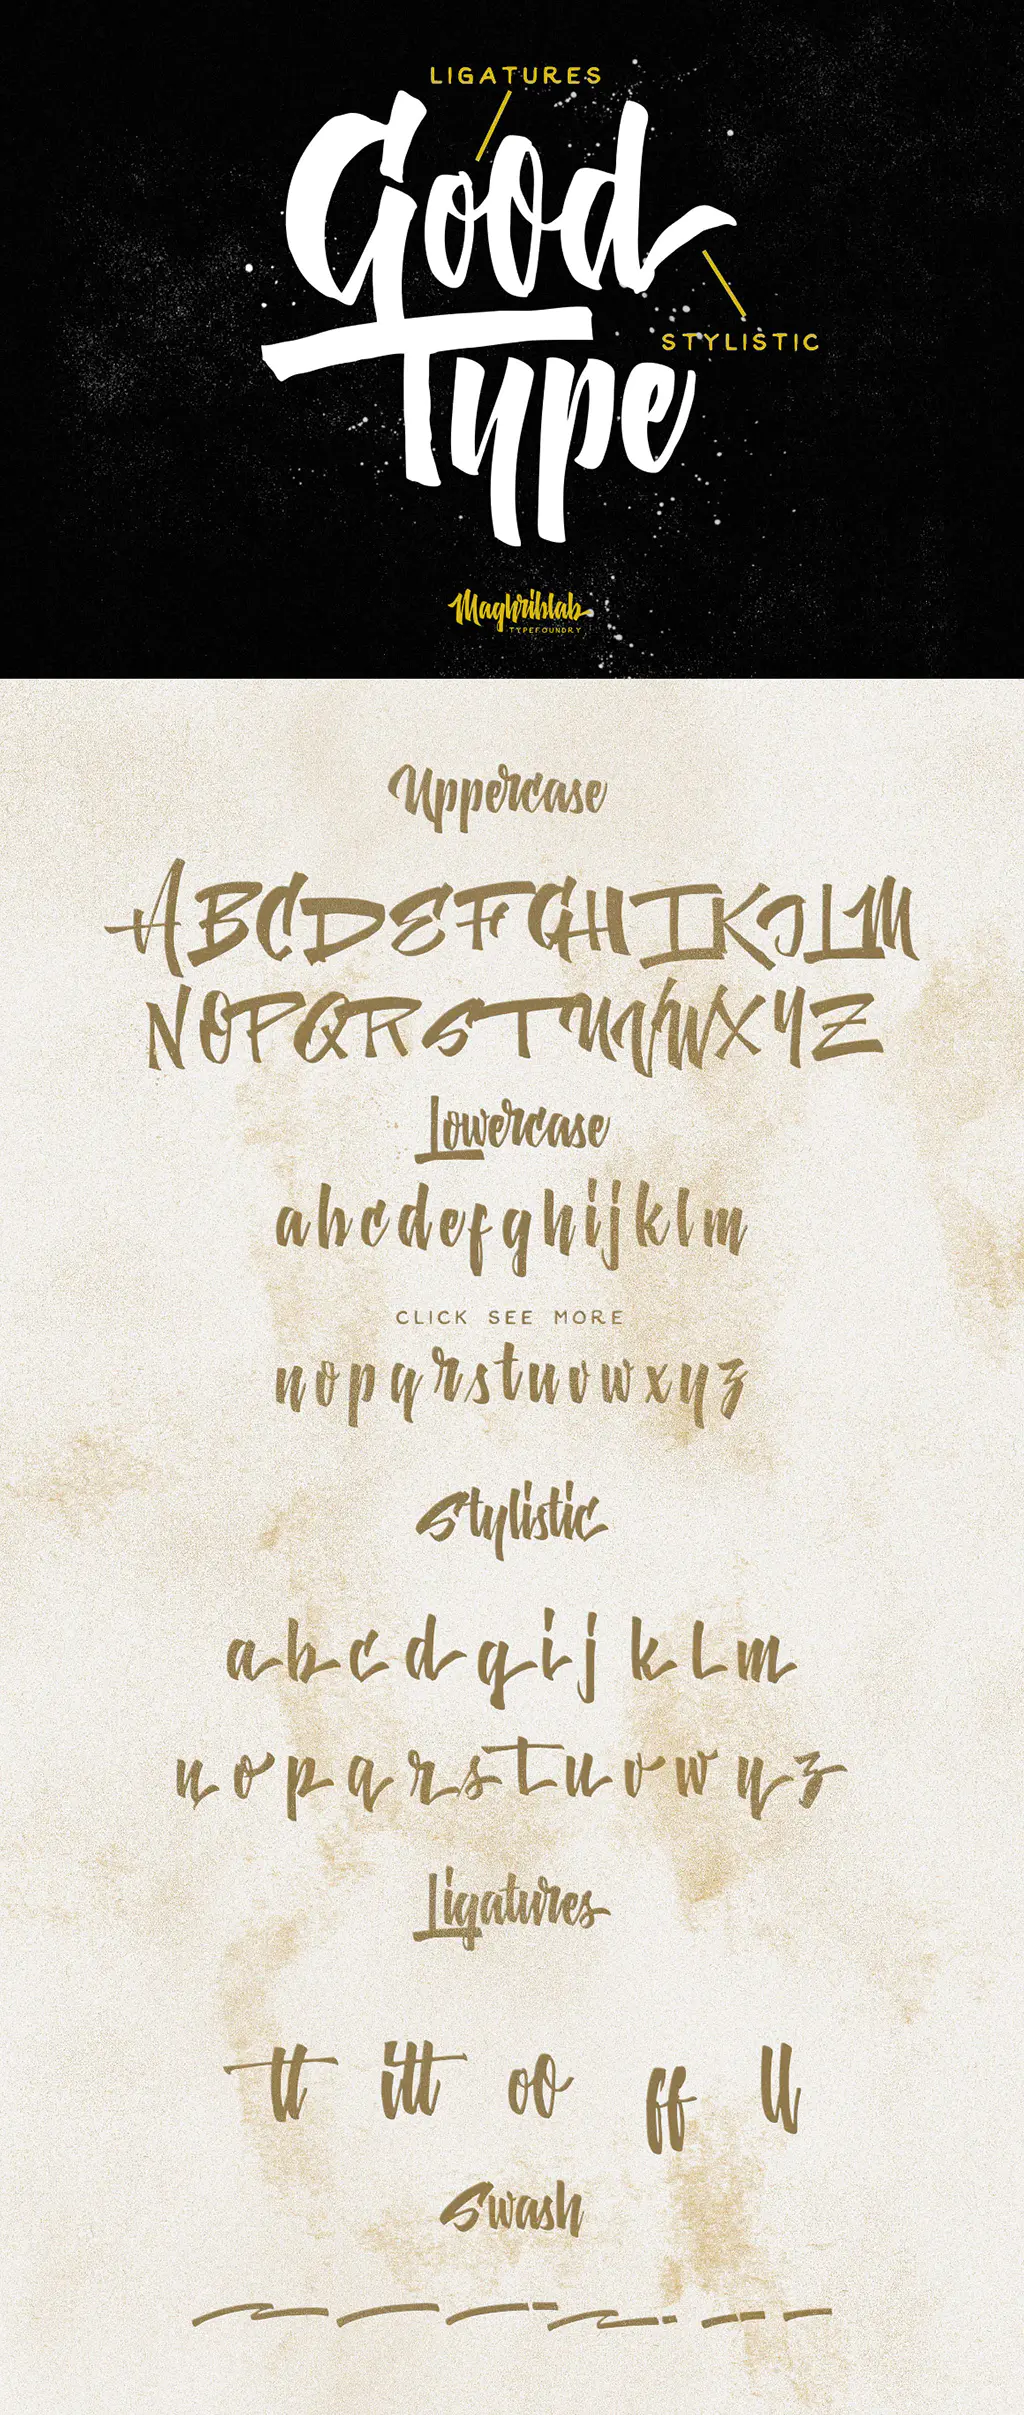 LIGATURES
Good
STYLISTIC
Type
Maghriblab
TYPEFOUNDRY
Uppercase
ABCDEFGHIKJLM
NOPQRSTUVWXYZ
Lowercase
abcdefghijklm
CLICK SEE MORE
nopqrstuvwxyz
Stylistic
abcdgijklm
nopqrstuvwyz
Ligatures
tt itt oo ff ll
Swash